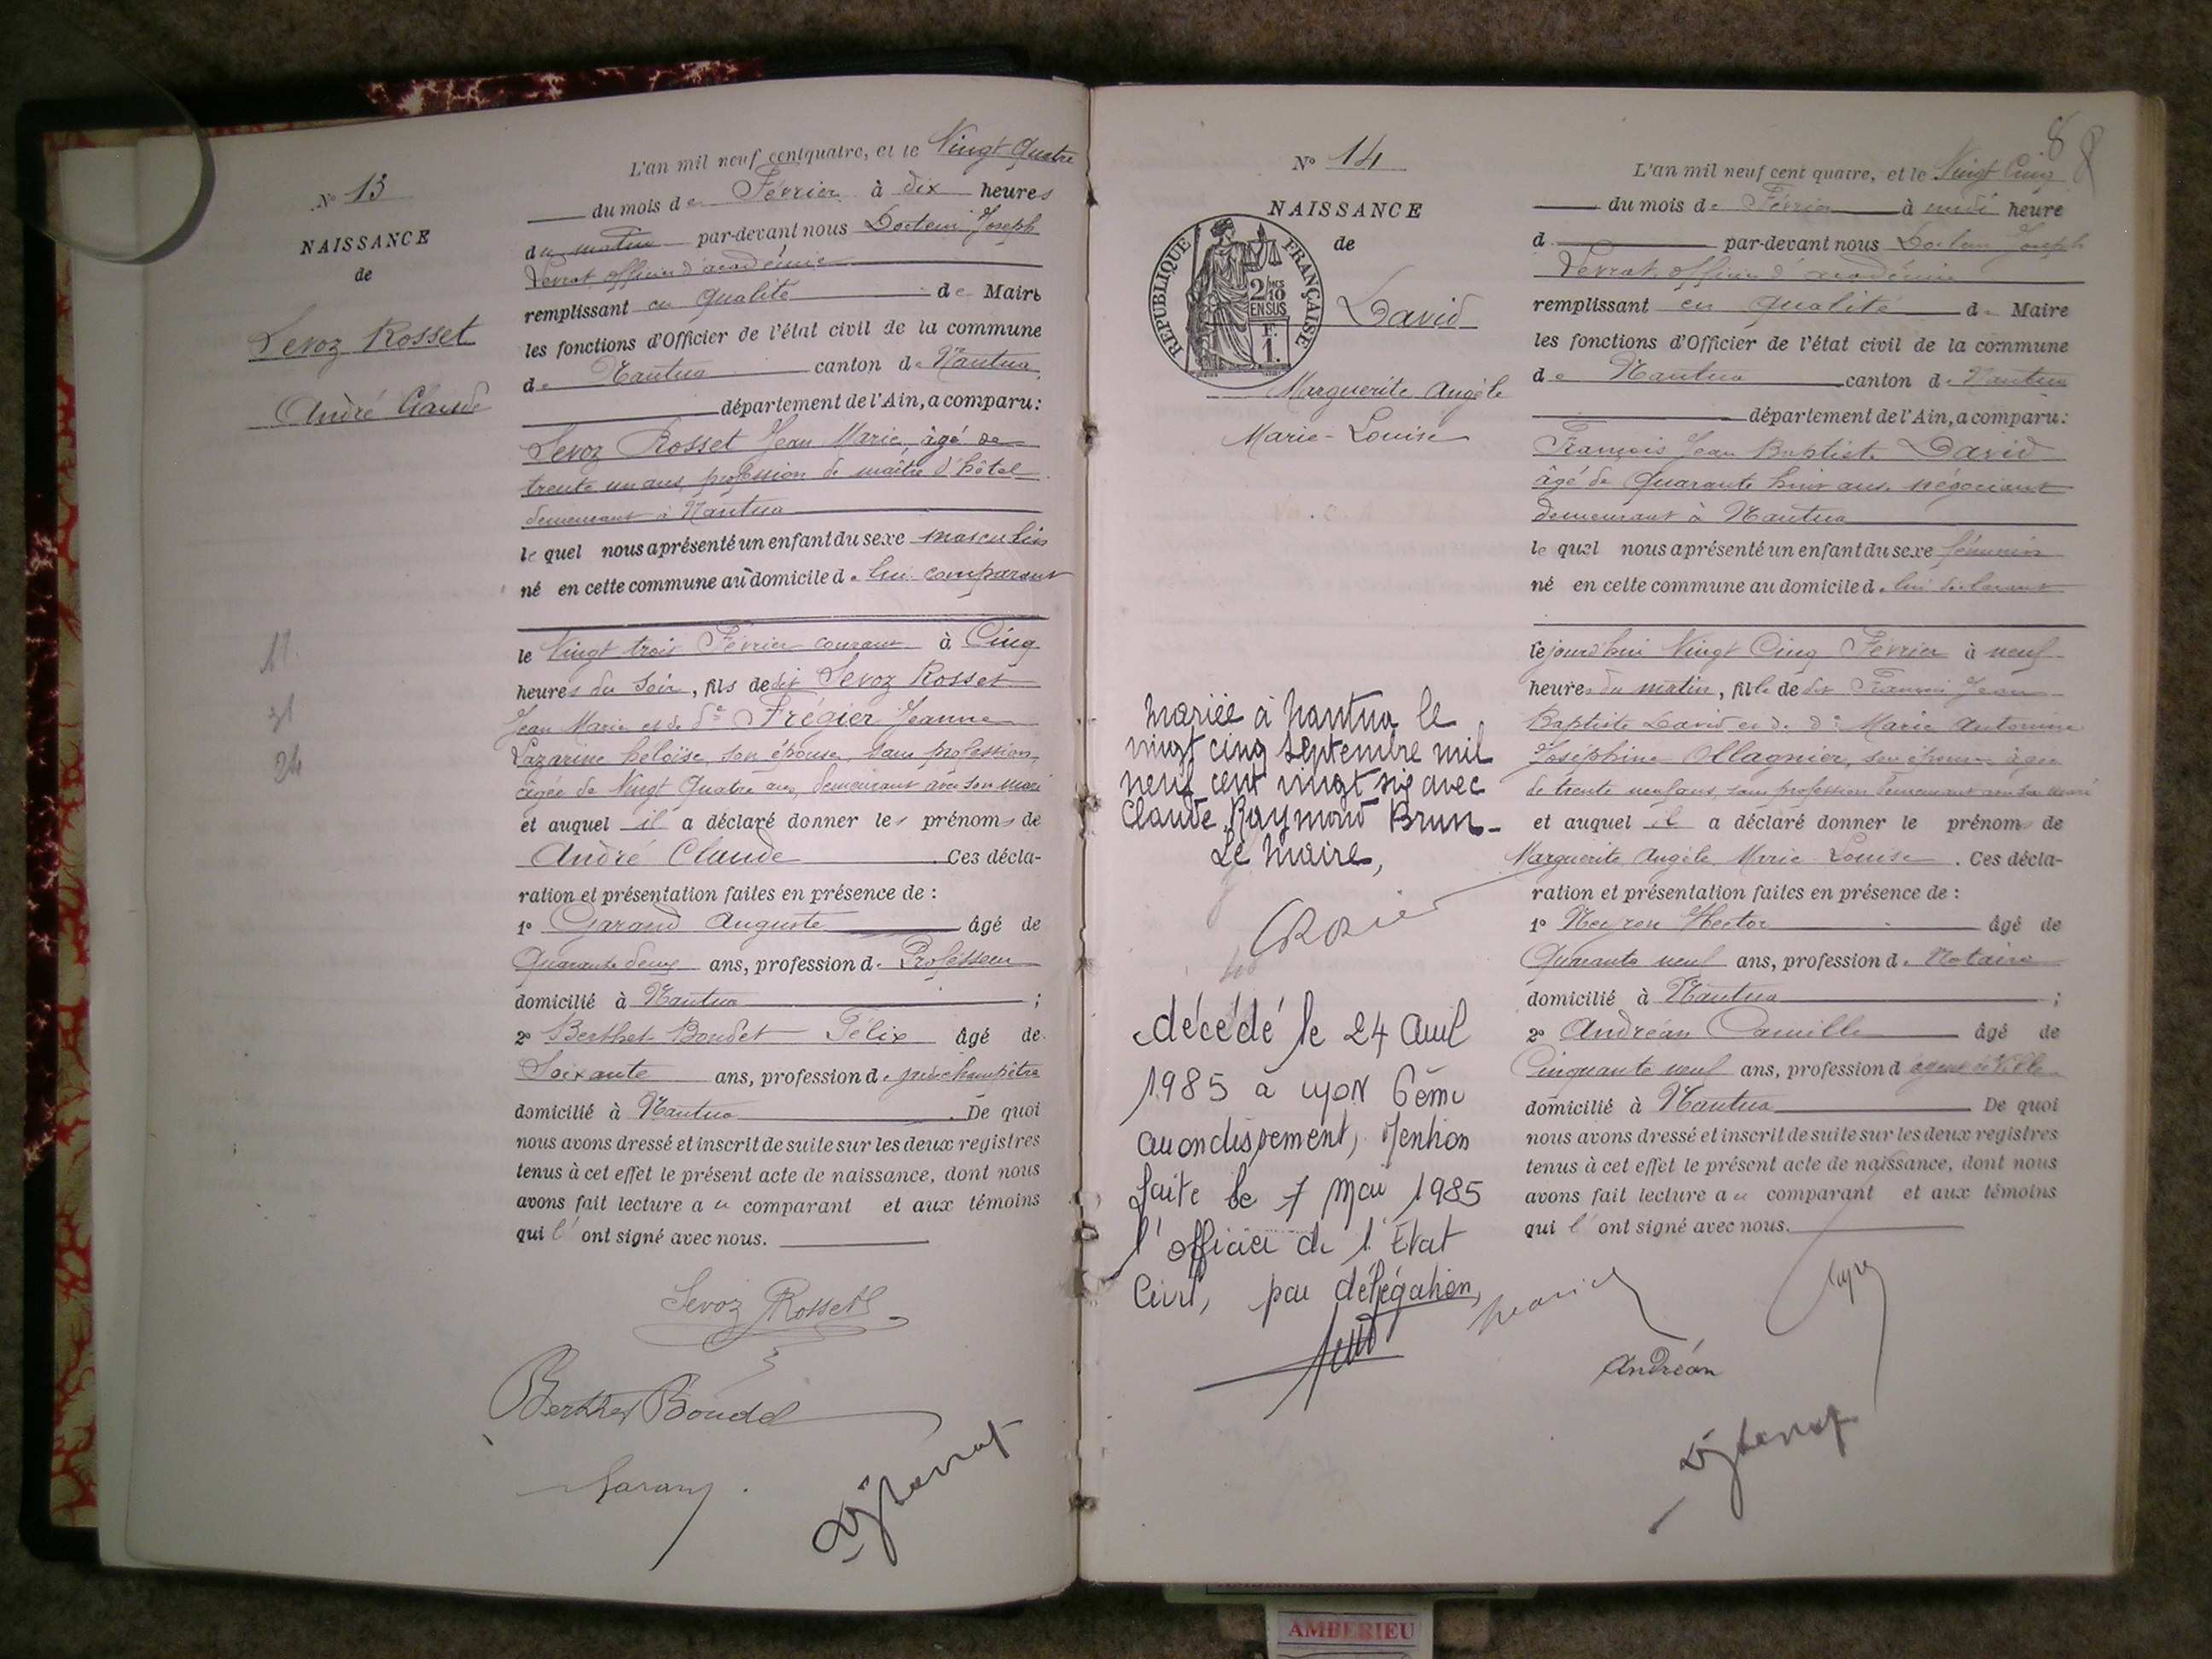 N° 13
NAISSANCE
de
Sevoz Rosset
André Claude
L'an mil neuf cent quatre, et le Vingt Quatre
du mois de Février à dix heures
du matin par-devant nous Docteur Joseph
Levrat officier d'académie
remplissant en qualité de Maire
les fonctions d'Officier de l'état civil de la commune
de Nantua canton de Nantua
département de l'Ain, a comparu :
Sevoz Rosset Jean Marie, âgé de
trente un ans, profession de maître d'hôtel
demeurant à Nantua
le quel nous a présenté un enfant du sexe masculin
né en cette commune au domicile de lui comparant
le Vingt trois Février courant à Cinq
heures du soir, fils de dit Sevoz Rosset
Jean Marie et de de Frégier Jeanne
Lazarine héloïse, son épouse, sans profession,
âgée de Vingt Quatre ans, demeurant avec son mari
et auquel il a déclaré donner les prénoms de
André Claude. Ces décla-
ration et présentation faites en présence de :
1° Garand Auguste âgé de
Quarante deux ans, profession de Professeur
domicilié à Nantua ;
2° Berthet Boudet Félix âgé de
Soixante ans, profession de garde champêtre
domicilié à Nantua. De quoi
nous avons dressé et inscrit de suite sur les deux registres
tenus à cet effet le présent acte de naissance, dont nous
avons fait lecture au comparant et aux témoins
qui l'ont signé avec nous.
Sevoz Rosset
Berthet Boudet
Garand
11
31
24
8
8
N° 14
NAISSANCE
de
RÉPUBLIQUE FRANÇAISE
2/10 EN SUS
F. 1.
David
Marguerite Angèle
Marie-Louise
mariée à Nantua le
vingt cinq septembre mil
neuf cent vingt six avec
Claude Raymond Brun-
Le Maire,
décédé le 24 avril
1985 à Lyon 6ème
arrondissement, Mention
faite le 7 mai 1985
l'officier de l'Etat
Civil, par délégation,
L'an mil neuf cent quatre, et le Vingt Cinq
du mois de Février à midi heure
d par-devant nous Docteur Joseph
Levrat, officier d'académie
remplissant en qualité de Maire
les fonctions d'Officier de l'état civil de la commune
de Nantua canton de Nantua
département de l'Ain, a comparu :
François Jean Baptiste David
âgé de Quarante huit ans, négociant
demeurant à Nantua
le quel nous a présenté un enfant du sexe féminin
né en cette commune au domicile de lui déclarant
cejourd'hui Vingt Cinq Février à neuf
heures du matin, fille de dit François Jean
Baptiste David et de de Marie Antonine
Joséphine Ollagnier, son épouse âgée
de trente neuf ans, sans profession demeurant avec son mari
et auquel il a déclaré donner le prénoms de
Marguerite Angèle Marie Louise. Ces décla-
ration et présentation faites en présence de :
1° Neyron Hector âgé de
Quarante neuf ans, profession de Notaire
domicilié à Nantua ;
2° Andréan Camille âgé de
Cinquante neuf ans, profession d agent de Ville
domicilié à Nantua De quoi
nous avons dressé et inscrit de suite sur les deux registres
tenus à cet effet le présent acte de naissance, dont nous
avons fait lecture au comparant et aux témoins
qui l'ont signé avec nous.
Andréan
AMBERIEU